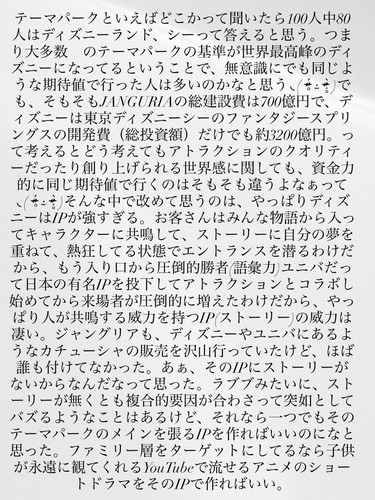 テーマパークといえばどこかって聞いたら100人中80
人はディズニーランド、シーって答えると思う。つま
り大多数　のテーマパークの基準が世界最高峰のディ
ズニーになってるということで、無意識にでも同じよ
うな期待値で行った人は多いのかなと思う、で
も、そもそもJANGURIAの総建設費は700億円で、デ
ィズニーは東京ディズニーシーのファンタジースプリ
ングスの開発費（総投資額）だけでも約3200億円。っ
て考えるとどう考えてもアトラクションのクオリティ
ーだったり創り上げられる世界感に関しても、資金力
的に同じ期待値で行くのはそもそも違うよなぁって
そんな中で改めて思うのは、やっぱりディズ
ニーはIPが強すぎる。お客さんはみんな物語から入っ
てキャラクターに共鳴して、ストーリーに自分の夢を
重ねて、熱狂してる状態でエントランスを潜るわけだ
から、もう入り口から圧倒的勝者(語彙力)ユニバだっ
て日本の有名IPを投下してアトラクションとコラボし
始めてから来場者が圧倒的に増えたわけだから、やっ
ぱり人が共鳴する威力を持つIP(ストーリー)の威力は
凄い。ジャングリアも、ディズニーやユニバにあるよ
うなカチューシャの販売を沢山行っていたけど、ほぼ
誰も付けてなかった。あぁ、そのIPにストーリーが
ないからなんだなって思った。ラブブみたいに、スト
ーリーが無くとも複合的要因が合わさって突如として
バズるようなことはあるけど、それなら一つでもその
テーマパークのメインを張るIPを作ればいいのになと
思った。ファミリー層をターゲットにしてるなら子供
が永遠に観てくれるYouTubeで流せるアニメのショー
トドラマをそのIPで作ればいい。